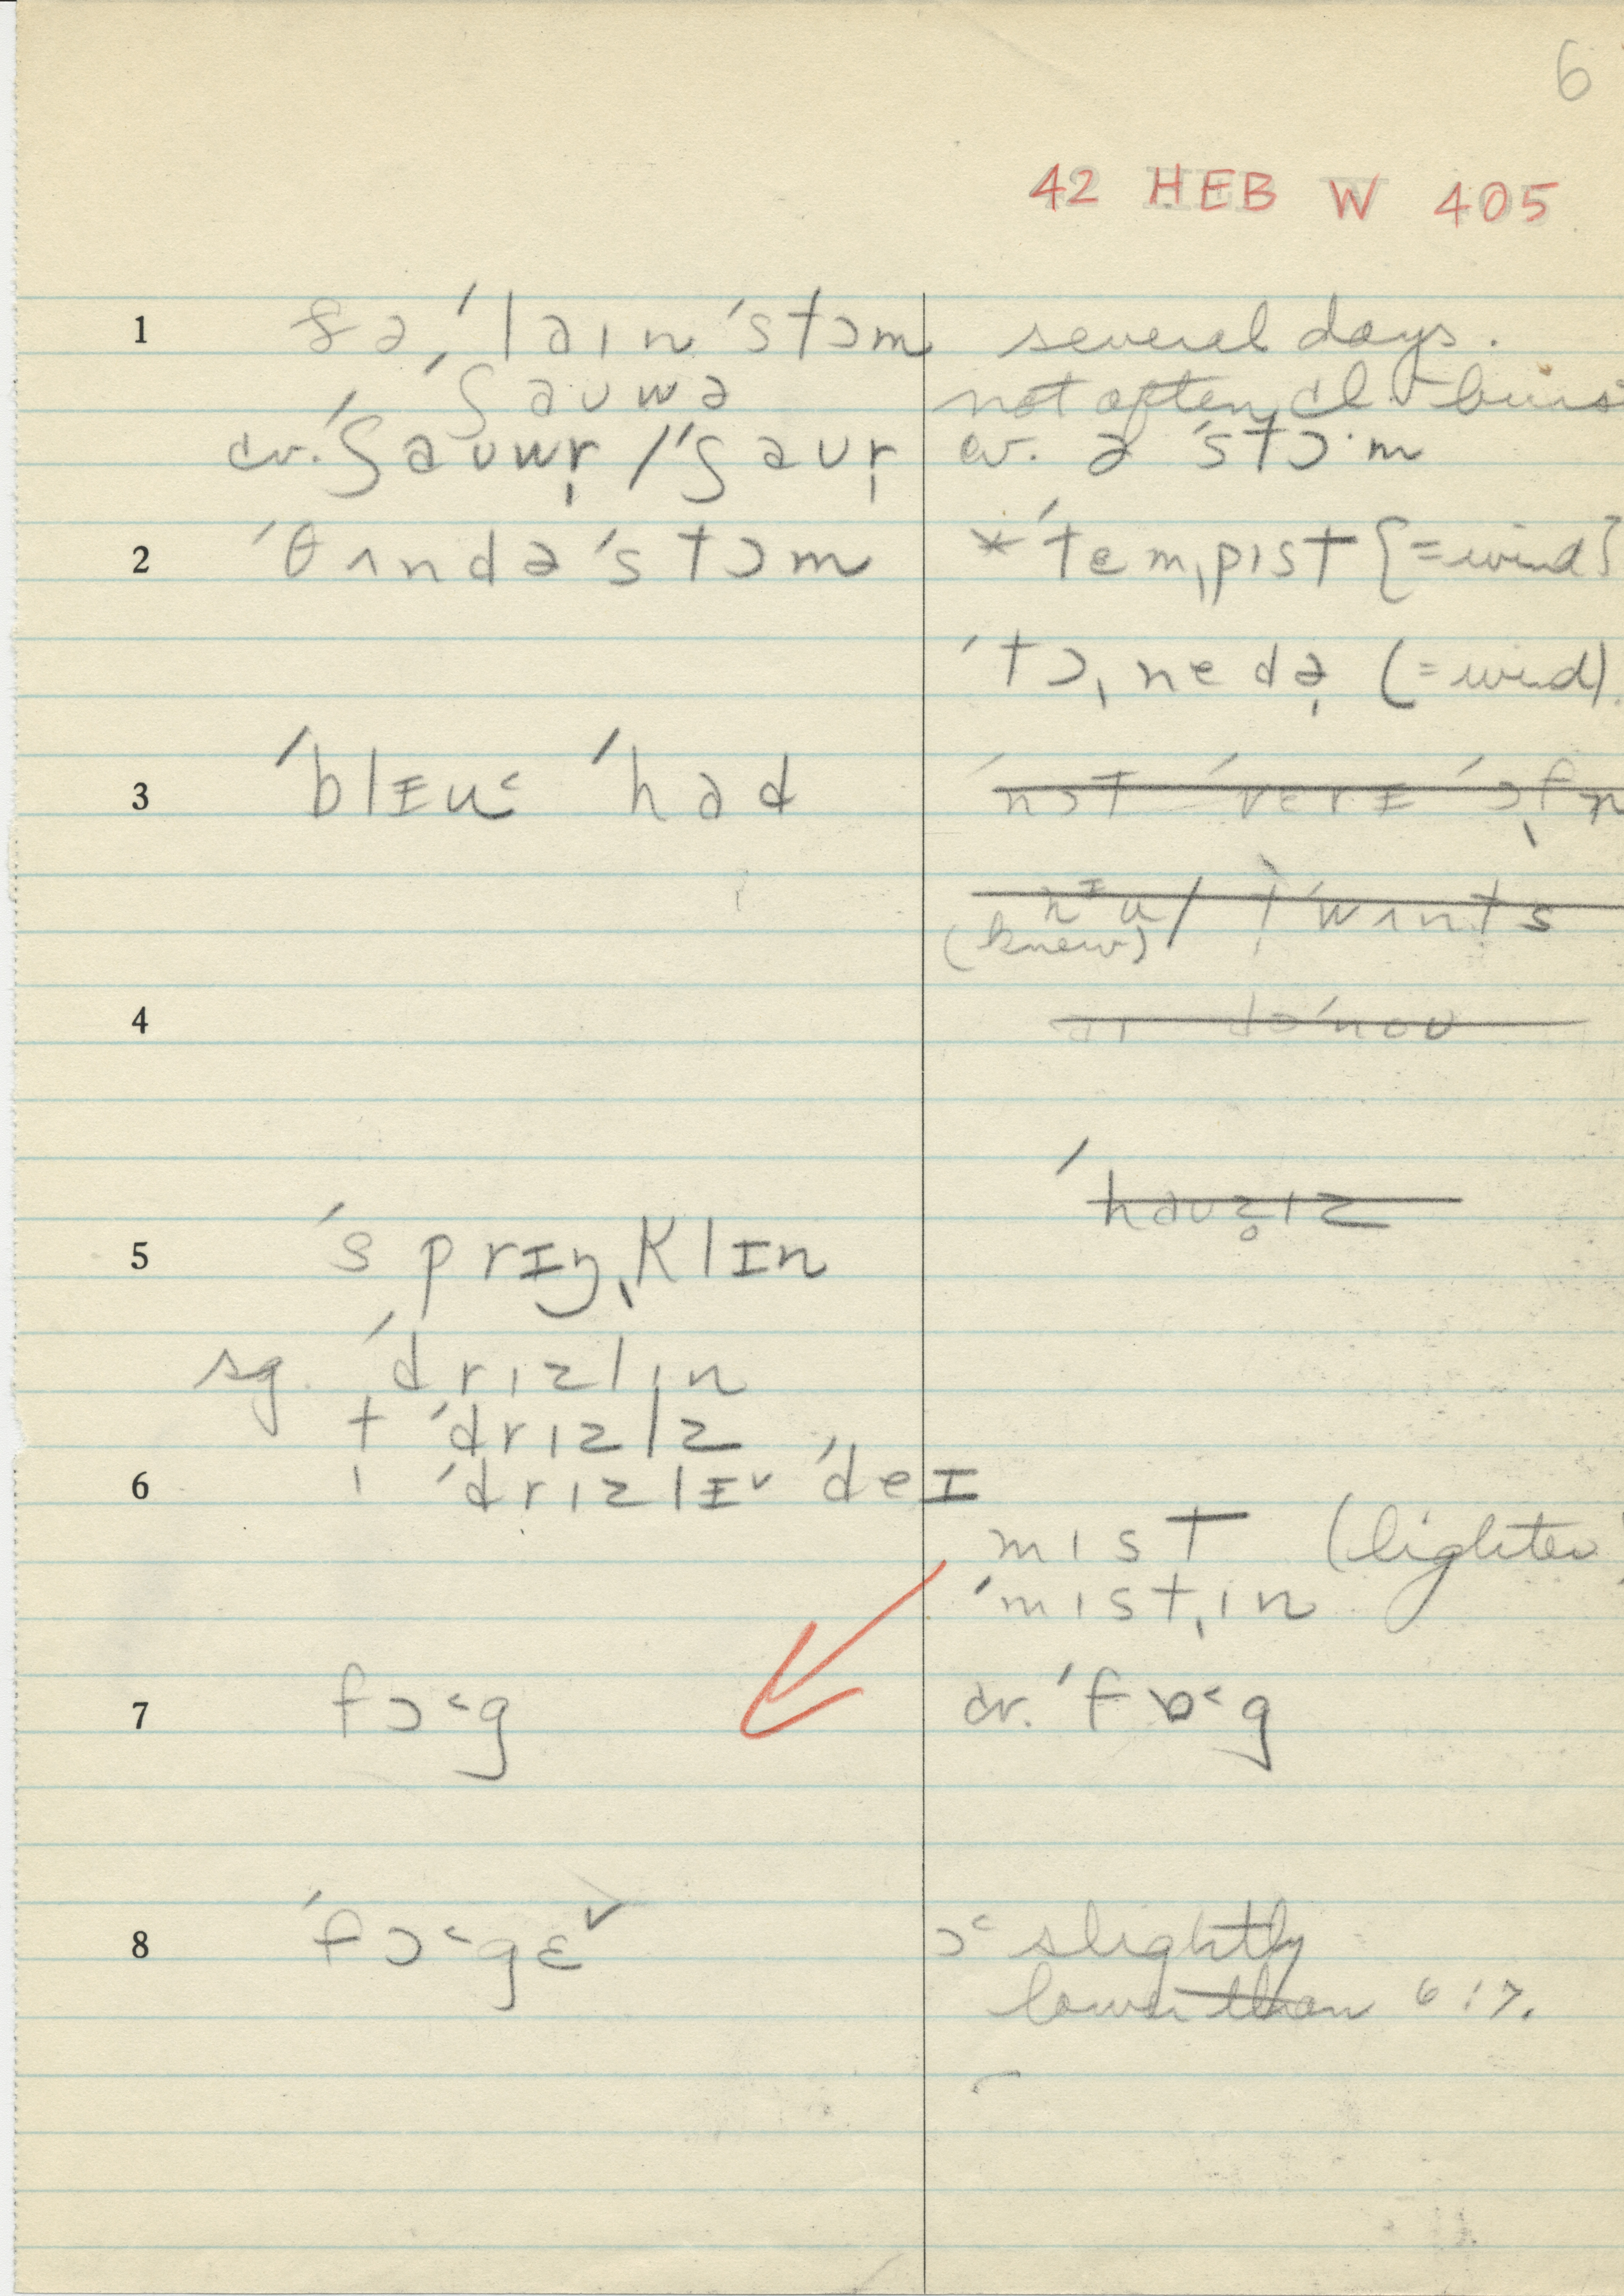 6
42 HEB W 405
1 ə ˈlaɪn ˈstɔm several days.
ˈʃaʊwə not often cl.
cv. ˈʃaʊwr̩ / ˈʃaʊr̩ cv. ə ˈstɔ·m
2 ˈθʌndə ˈstɔm * ˈtemˌpɪst {=wind}
ˈtɔˌnedə̩ (=wind).
3 ˈblᵻu˂ ˈhad ˈnɔt ˈverᵻ ˈɔfˌn
nᶦu / ˈwʌnts
(knew)
4 ˈnoʊ
ˈhaʊz̥ɪz
5 ˈsprɪŋˌklɪn
sg. ˈdrɪzlɪn
† ˈdrɪzlz
6 ˈdrɪzlᵻ˅ ˈdeɪ
mɪst (lighter)
ˈmɪstˌɪn
7 fɔ˂g cv. ˈfɒ˂g
8 ˈfɔ˂gɛ˅ ɔ˂ slightly
lower than 6:7.